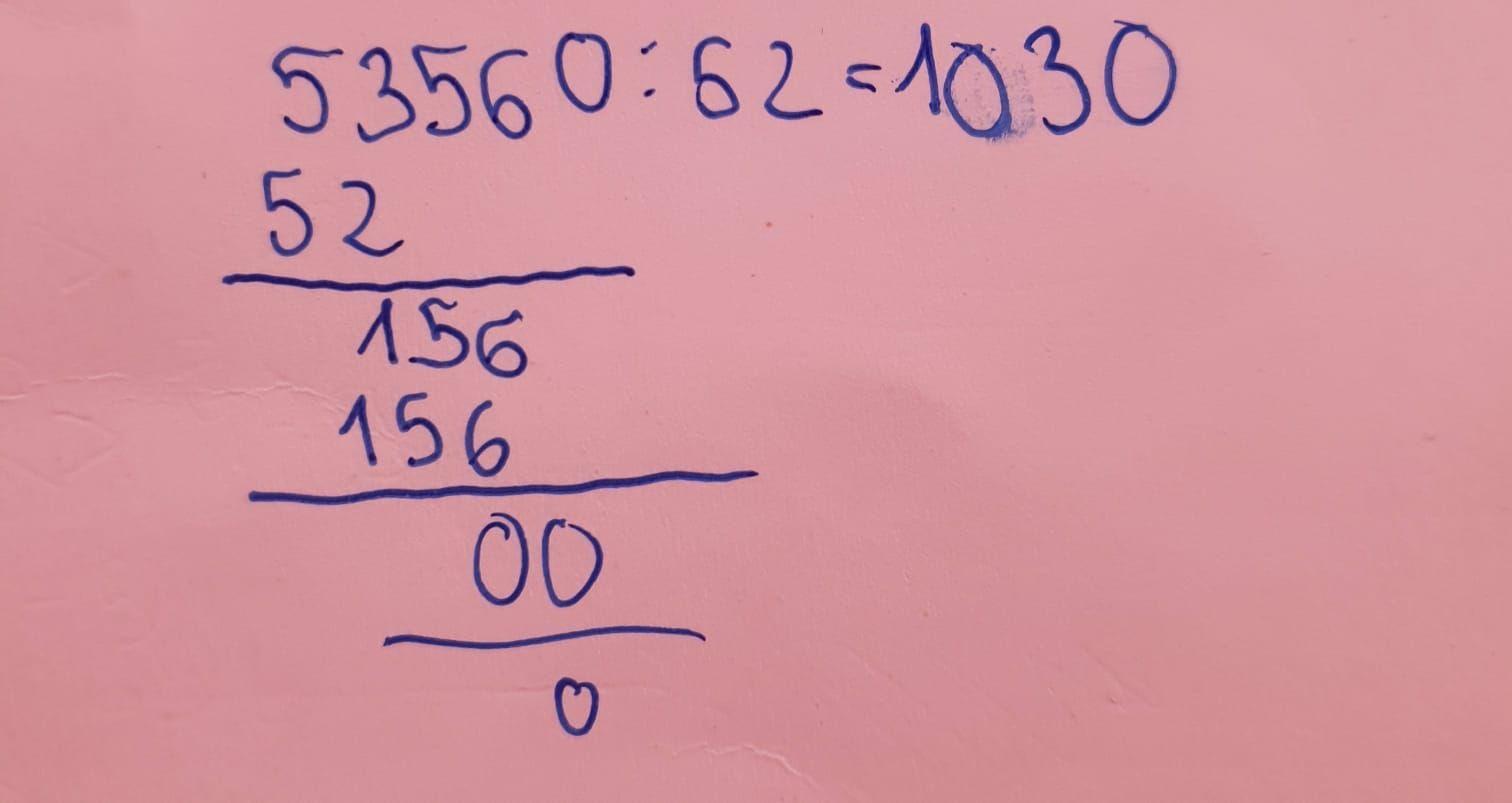 53560:62=1030
52
156
156
00
0